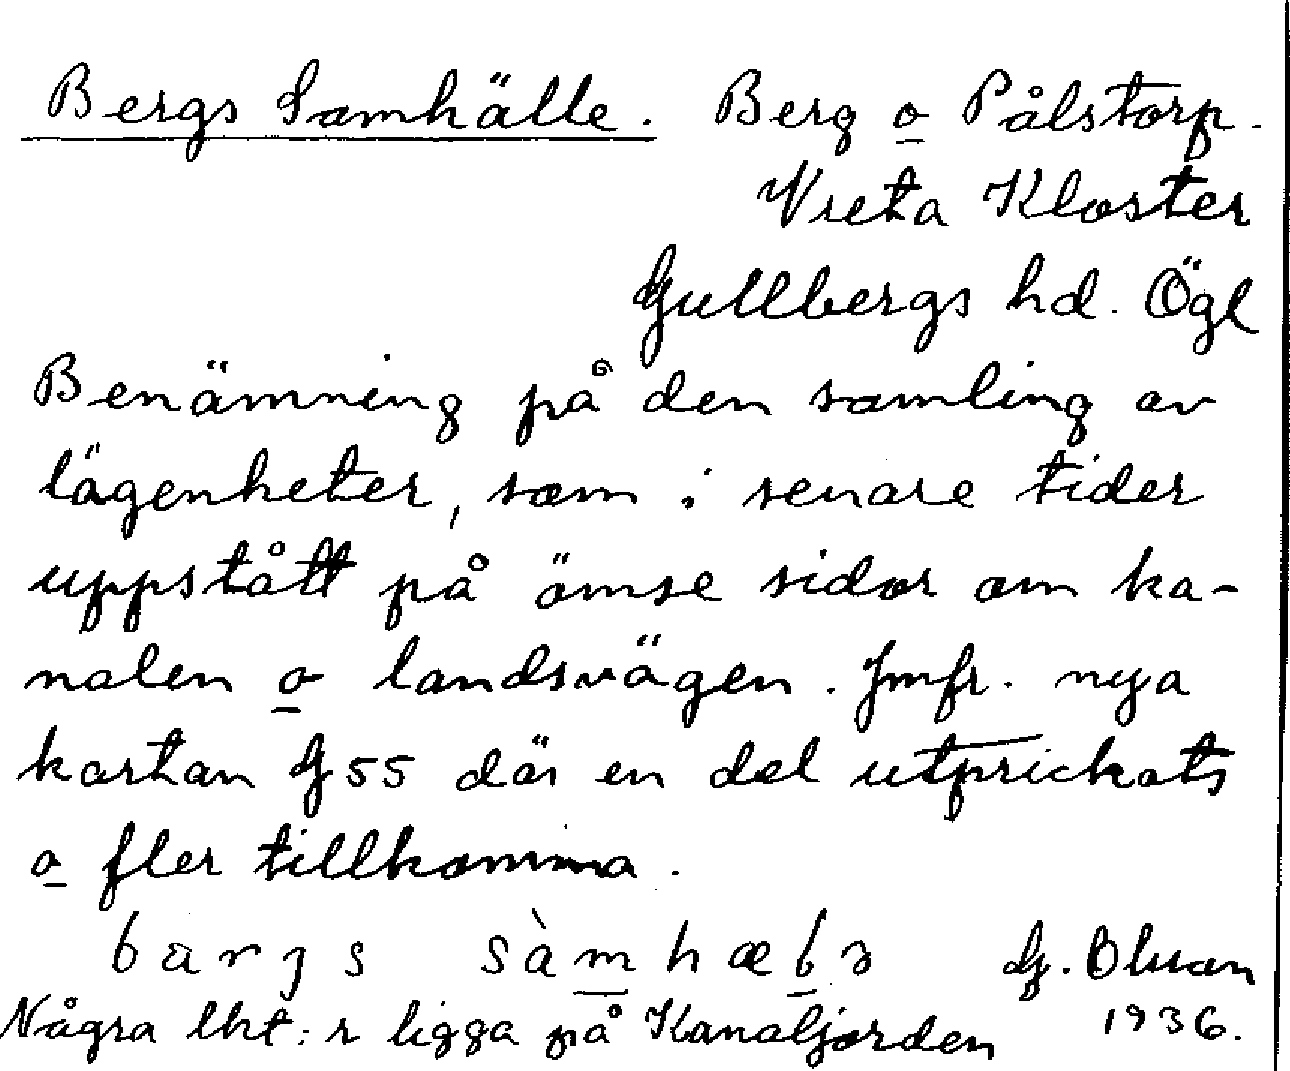 Bergs Samhälle. Berg o Pålstorp.
Vreta Kloster
Gullbergs hd. Ögl
Benämning på den samling av
lägenheter, som i senare tider
uppstått på ömse sidor om ka-
nalen o landsvägen. Jmfr. nya
kartan G 55 där en del utprickats
o fler tillkomma.
G.
1936.
Några lht:r ligga på Kanaljorden